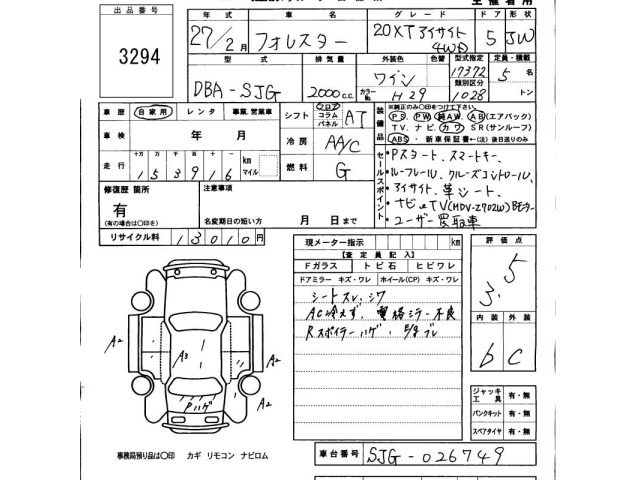 出品番号
3294
年式 車名 グレード ドア 形状
27/2月 フォレスター 20XTアイサイト 4WD 5 JW
型式 排気量 外装色 色替 型式指定 定員・積載
DBA-SJG 2000c.c. ワイン 17372 5名
カラーNo. H29 類別区分 1028 トン
車歴 自家用 レンタ 事業、営業車
シフト フロア コラム パネル AT
装備品 ※純正のみ○印をつけて下さい。
PS、PW、純AW、AB(エアバック)
TV、ナビ、カワ、SR(サンルーフ)
ABS・新車保証書←(注)後日送りのみ
車検 年 月
冷房 AA/C
走行 十万 万 千 百 十 一
153916 km マイル
燃料 G
セールスポイント
・Pスタート、スマートキー、
・ルーフレール、クルーズコントロール、
・アイサイト、革シート、
・ナビ TV(MDV-Z702W)Bモニター
・ユーザー買取車
修復歴 箇所 注意事項
有
(有の場合は○印を) 名変期日の短い方 月 日まで
リサイクル料 13010円
現メーター指示 km
評価点
3.5
【査定員記入】
Fガラス トビ石 ヒビワレ
ドアミラー キズ・ワレ ホイール(CP) キズ・ワレ
シートスレ、シワ
AC冷えず、電格ミラー不良
Rスポイラーハゲ、
内装 外装
b C
A2 A3 A2
Pハゲ A2
ジャッキ工具 有・無
パンクキット 有・無
スペアタイヤ 有・無
事務局預り品は○印 カギ リモコン ナビロム
車台番号 SJG-026749